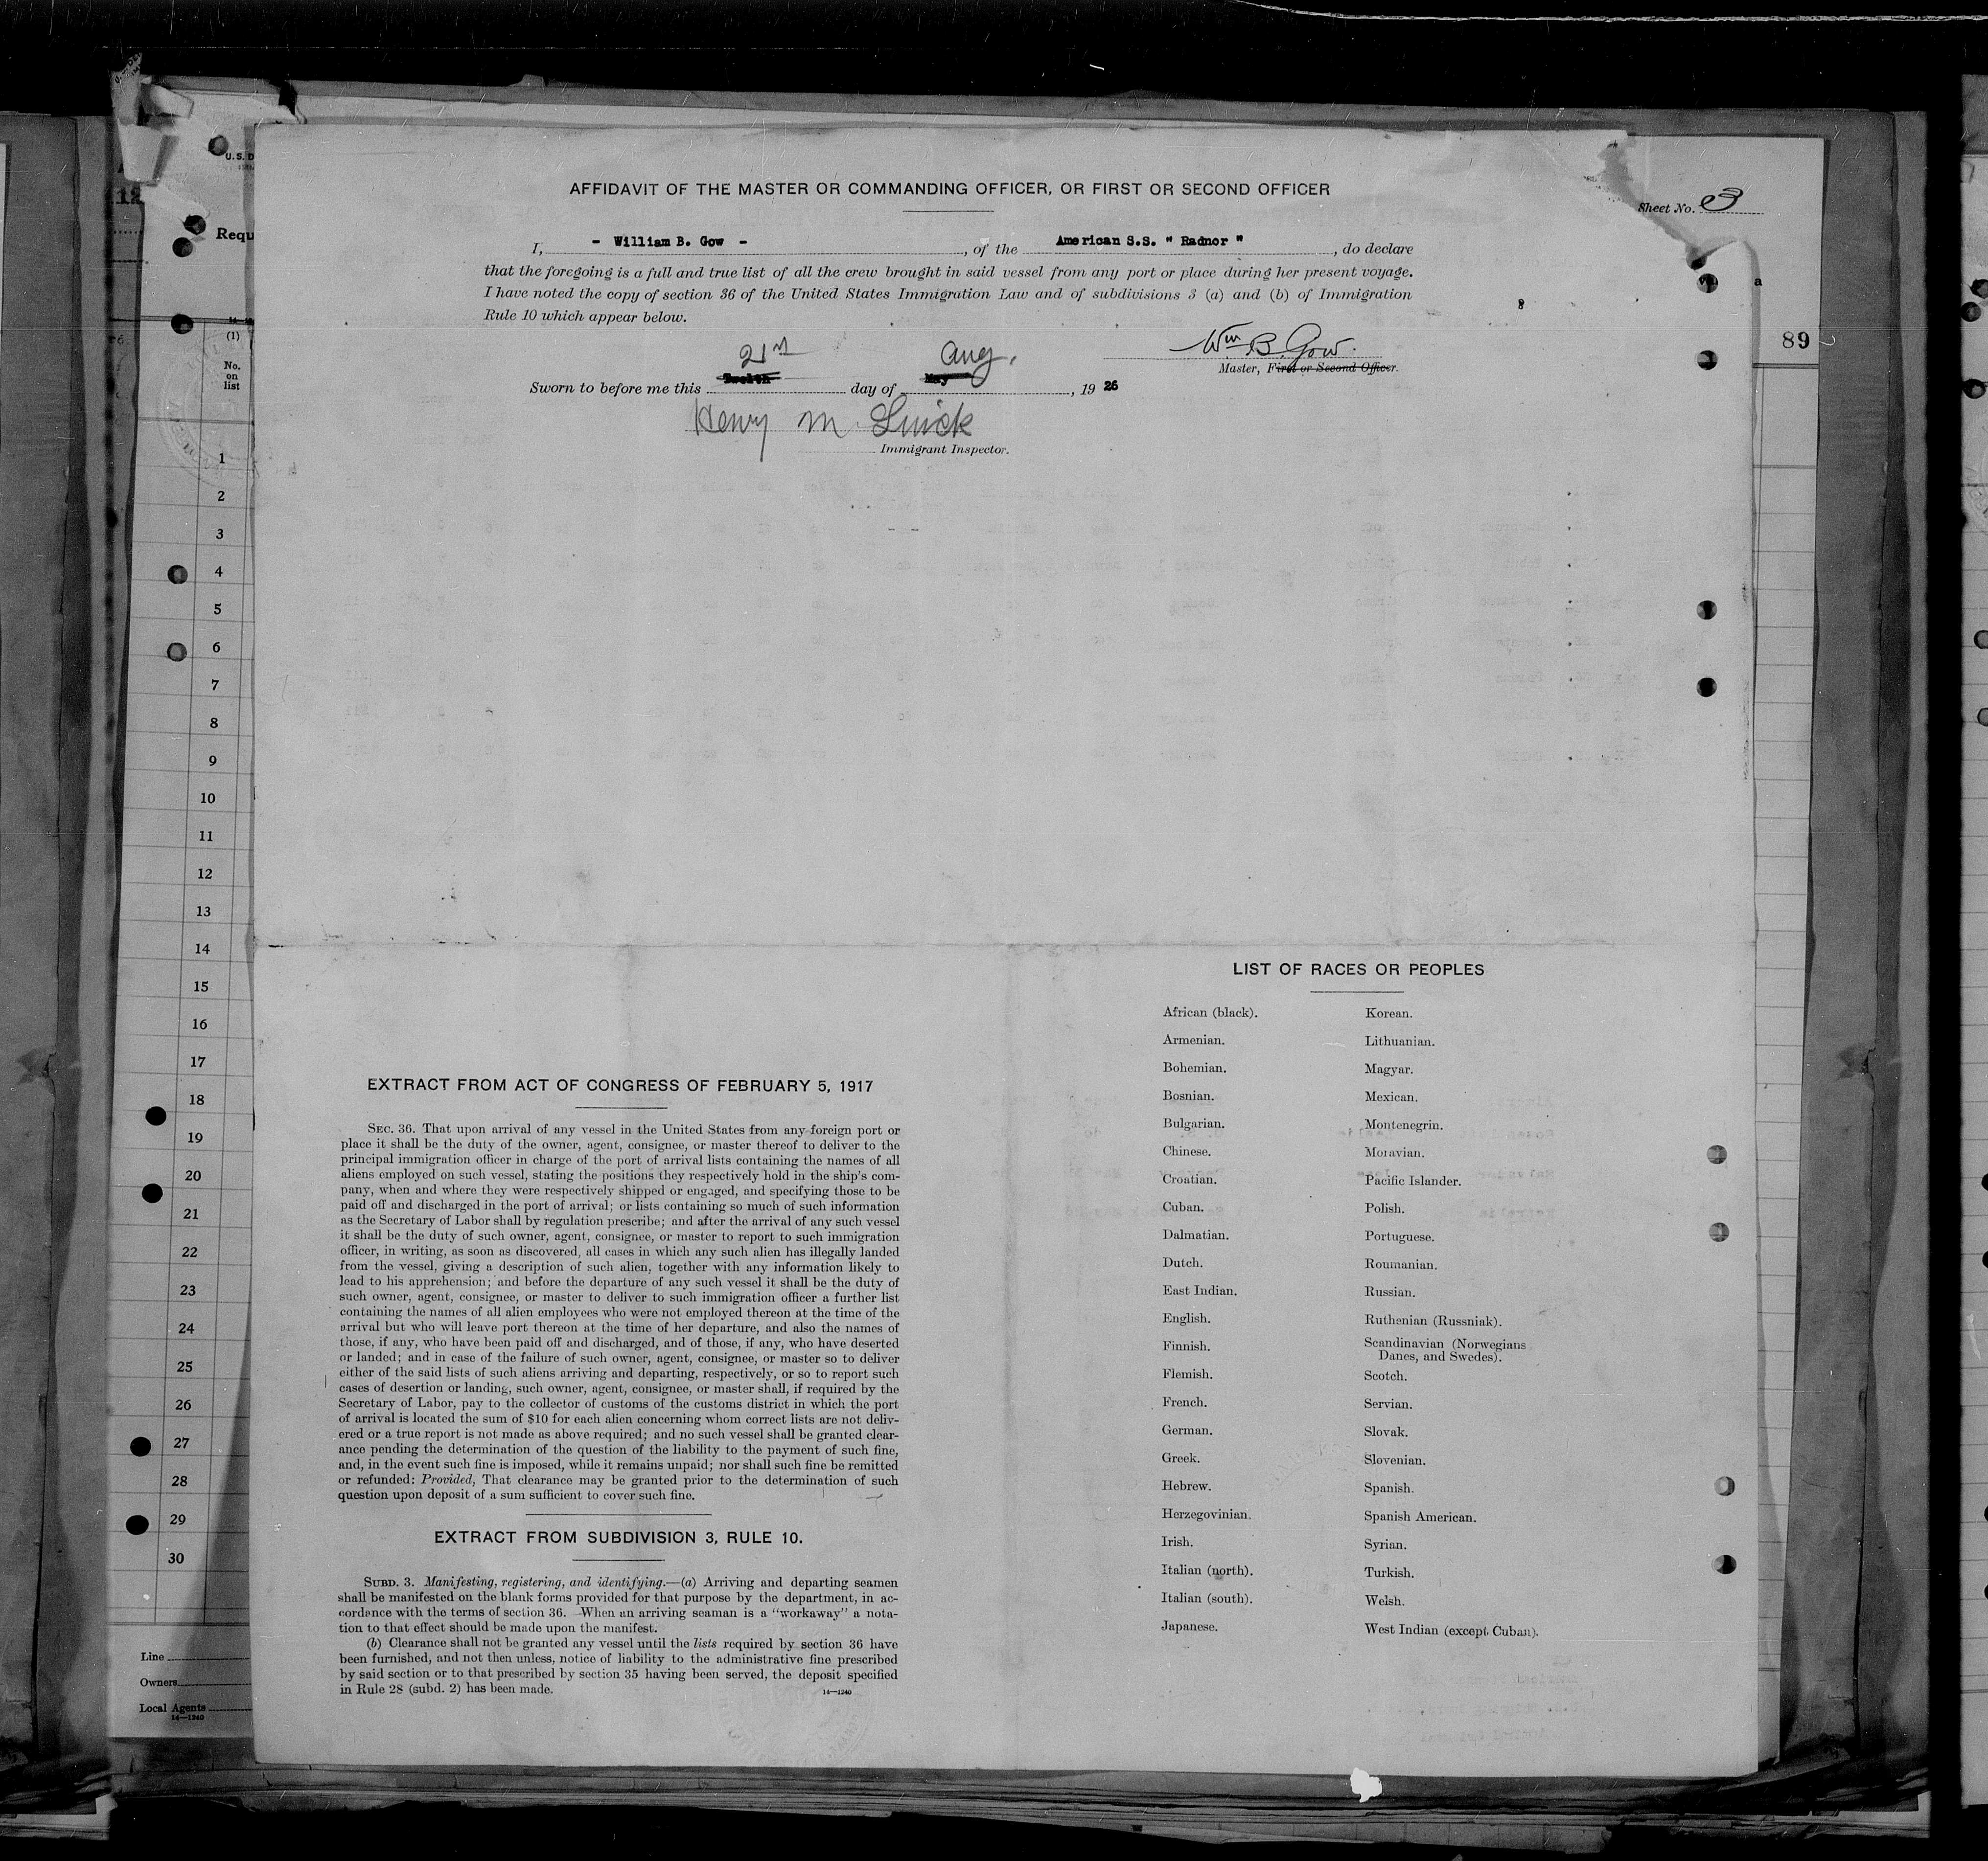 AFFIDAVIT OF THE MASTER OR COMMANDING OFFICER, OR FIRST OR SECOND OFFICER
Sheet No. 3
I, - William B. Gow - , of the American S.S. " Radnor " , do declare
that the foregoing is a full and true list of all the crew brought in said vessel from any port or place during her present voyage.
I have noted the copy of section 36 of the United States Immigration Law and of subdivisions 3 (a) and (b) of Immigration
Rule 10 which appear below.
Wm B. Gow.
Master, First or Second Officer.
21st Aug.
Sworn to before me this Twelth day of May , 19 26
Henry M.
Immigrant Inspector.
EXTRACT FROM ACT OF CONGRESS OF FEBRUARY 5, 1917
SEC. 36. That upon arrival of any vessel in the United States from any foreign port or
place it shall be the duty of the owner, agent, consignee, or master thereof to deliver to the
principal immigration officer in charge of the port of arrival lists containing the names of all
aliens employed on such vessel, stating the positions they respectively hold in the ship's com-
pany, when and where they were respectively shipped or engaged, and specifying those to be
paid off and discharged in the port of arrival; or lists containing so much of such information
as the Secretary of Labor shall by regulation prescribe; and after the arrival of any such vessel
it shall be the duty of such owner, agent, consignee, or master to report to such immigration
officer, in writing, as soon as discovered, all cases in which any such alien has illegally landed
from the vessel, giving a description of such alien, together with any information likely to
lead to his apprehension; and before the departure of any such vessel it shall be the duty of
such owner, agent, consignee, or master to deliver to such immigration officer a further list
containing the names of all alien employees who were not employed thereon at the time of the
arrival but who will leave port thereon at the time of her departure, and also the names of
those, if any, who have been paid off and discharged, and of those, if any, who have deserted
or landed; and in case of the failure of such owner, agent, consignee, or master so to deliver
either of the said lists of such aliens arriving and departing, respectively, or so to report such
cases of desertion or landing, such owner, agent, consignee, or master shall, if required by the
Secretary of Labor, pay to the collector of customs of the customs district in which the port
of arrival is located the sum of $10 for each alien concerning whom correct lists are not deliv-
ered or a true report is not made as above required; and no such vessel shall be granted clear-
ance pending the determination of the question of the liability to the payment of such fine,
and, in the event such fine is imposed, while it remains unpaid; nor shall such fine be remitted
or refunded: Provided, That clearance may be granted prior to the determination of such
question upon deposit of a sum sufficient to cover such fine.
EXTRACT FROM SUBDIVISION 3, RULE 10.
SUBD. 3. Manifesting, registering, and identifying.—(a) Arriving and departing seamen
shall be manifested on the blank forms provided for that purpose by the department, in ac-
cordance with the terms of section 36. When an arriving seaman is a "workaway" a nota-
tion to that effect should be made upon the manifest.
(b) Clearance shall not be granted any vessel until the lists required by section 36 have
been furnished, and not then unless, notice of liability to the administrative fine prescribed
by said section or to that prescribed by section 35 having been served, the deposit specified
in Rule 28 (subd. 2) has been made.
14—1240
LIST OF RACES OR PEOPLES
African (black).
Armenian.
Bohemian.
Bosnian.
Bulgarian.
Chinese.
Croatian.
Cuban.
Dalmatian.
Dutch.
East Indian.
English.
Finnish.
Flemish.
French.
German.
Greek.
Hebrew.
Herzegovinian.
Irish.
Italian (north).
Italian (south).
Japanese.
Korean.
Lithuanian.
Magyar.
Mexican.
Montenegrin.
Moravian.
Pacific Islander.
Polish.
Portuguese.
Roumanian.
Russian.
Ruthenian (Russniak).
Scandinavian (Norwegians
Danes, and Swedes).
Scotch.
Servian.
Slovak.
Slovenian.
Spanish.
Spanish American.
Syrian.
Turkish.
Welsh.
West Indian (except Cuban).
U.S. D
Requ
(1)
No.
on
list
1
2
3
4
5
6
7
8
9
10
11
12
13
14
15
16
17
18
19
20
21
22
23
24
25
26
27
28
29
30
Line
Owners
Local Agents
14—1240
89